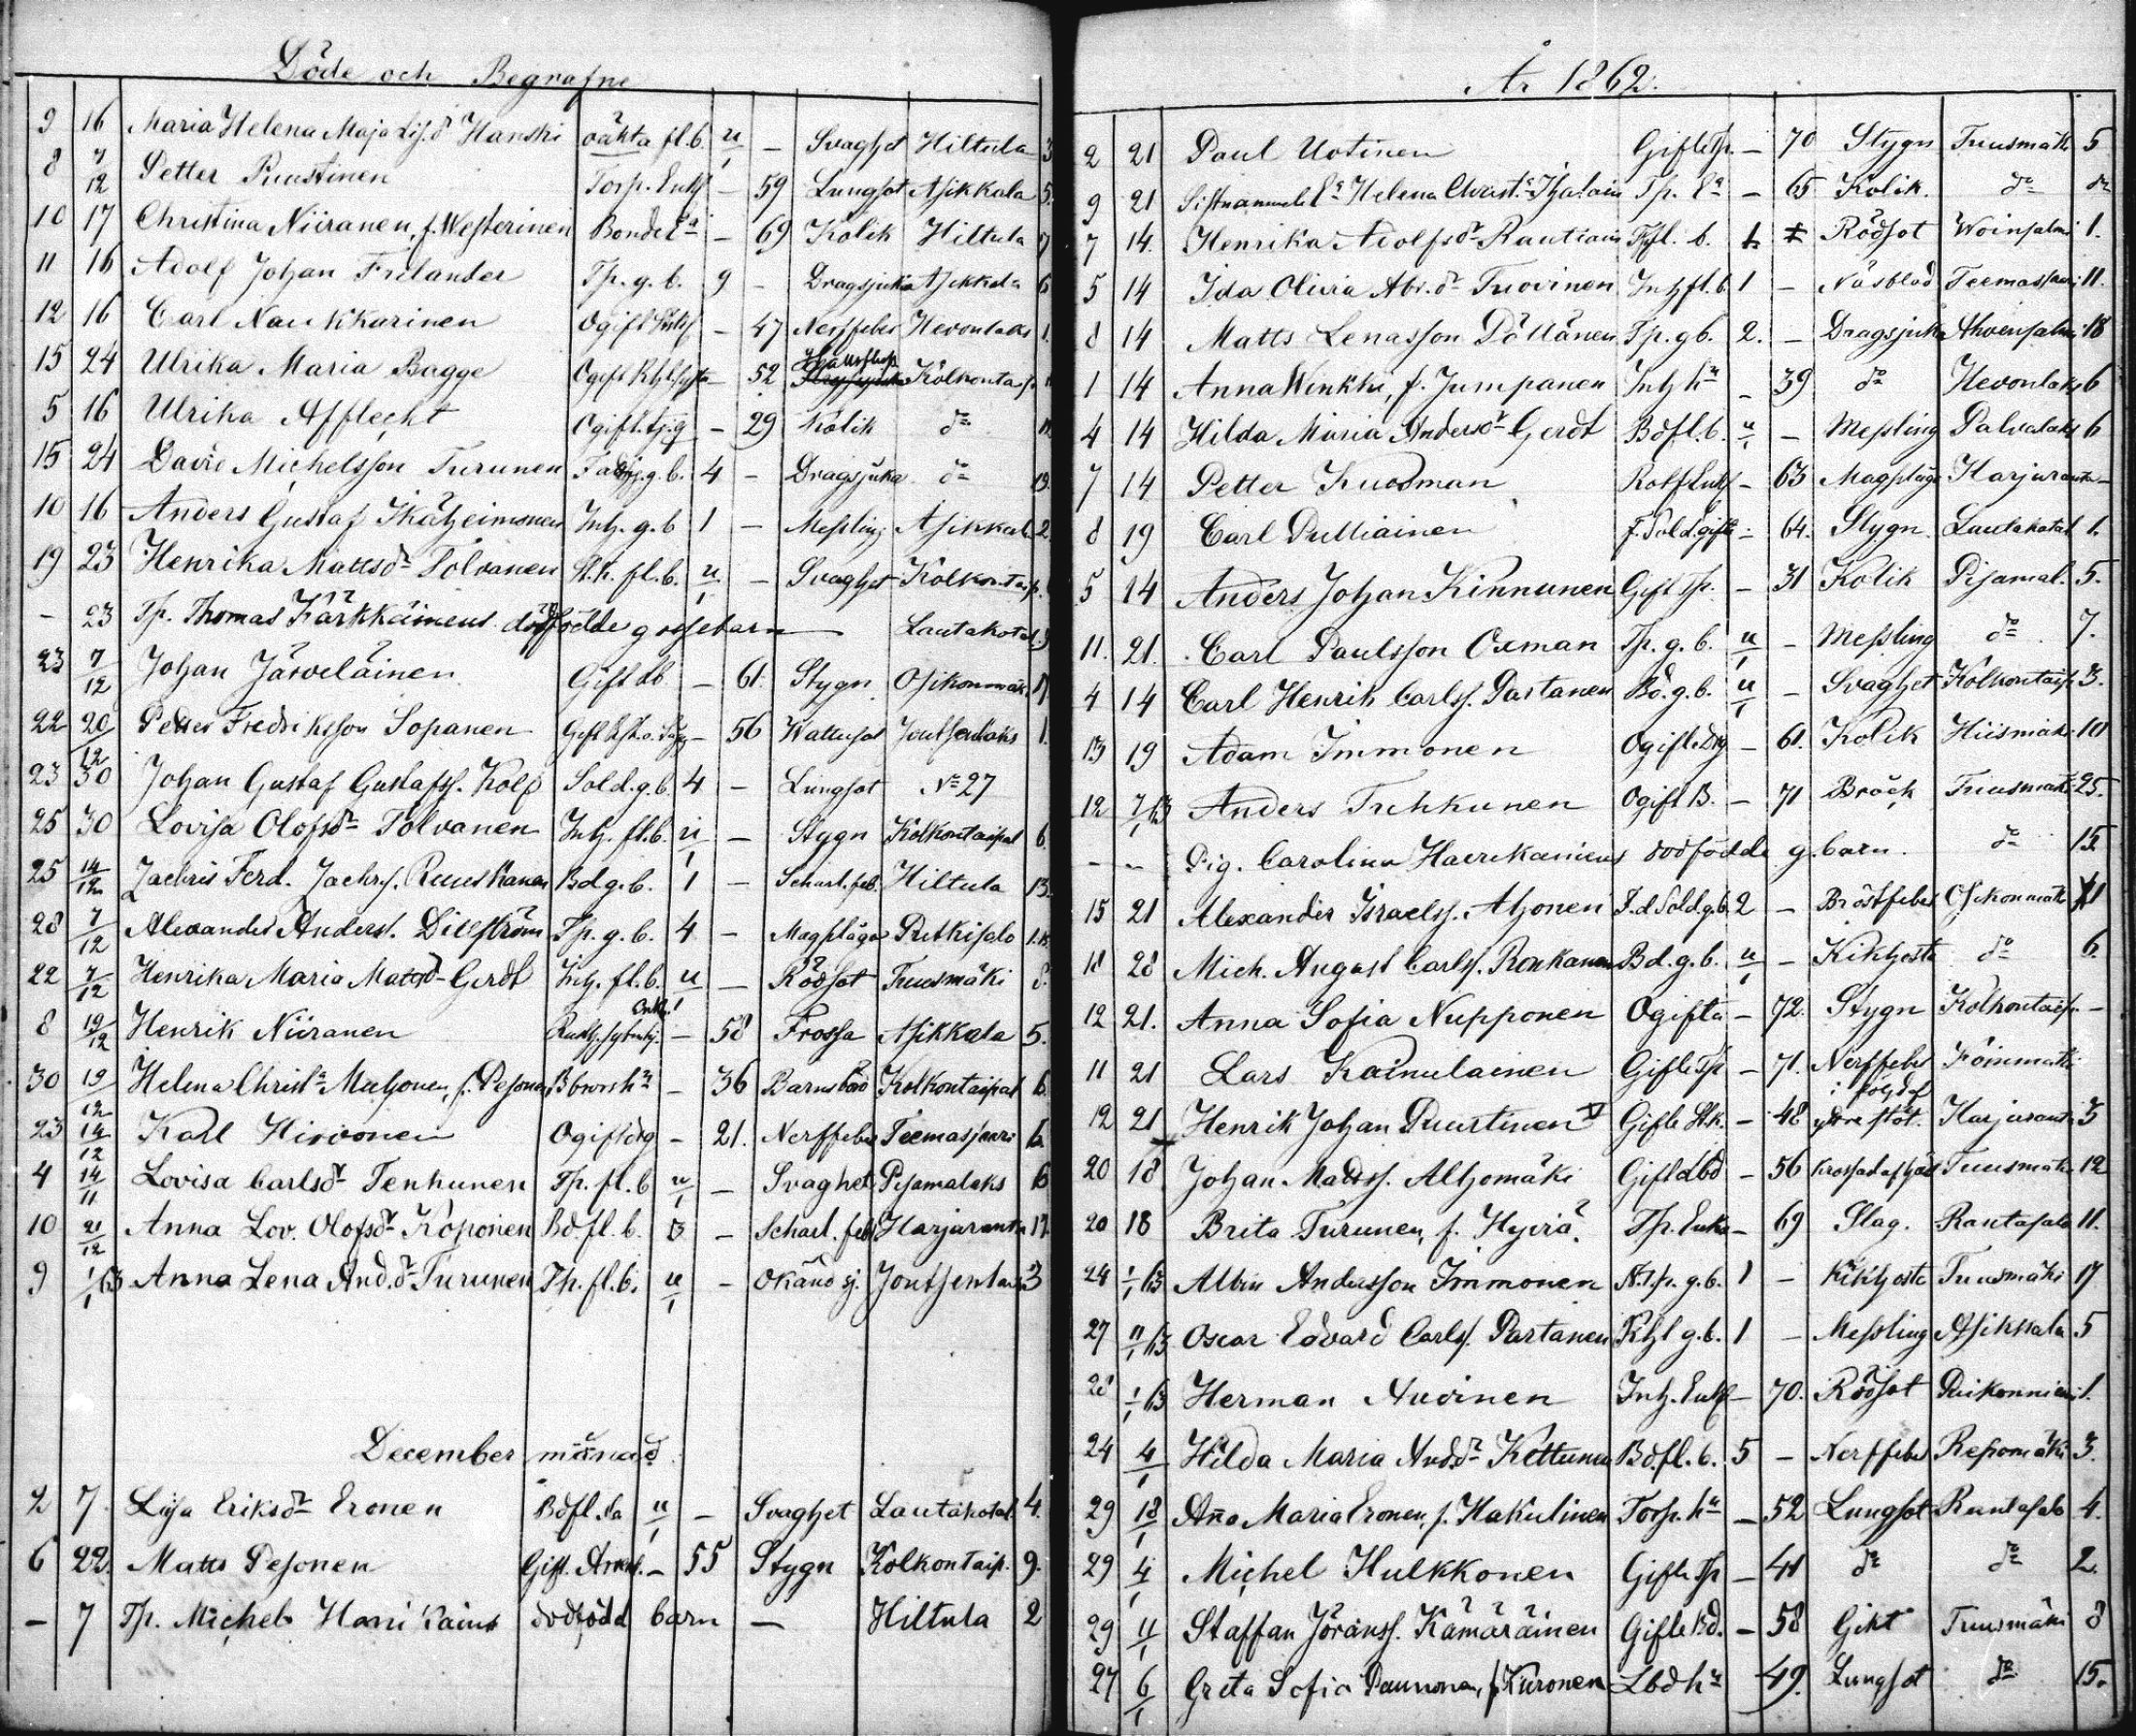 Döde och Begrafne
9 16 Maria Helena Maja Lis.dr Hanski oäkta fl.b. u/1 — Svaghet Hiltula 3
8 7/12 Petter Puustinen Torp. Enkl — 59 Lungsot Asikkala 5.
10 17 Christina Niiranen, f. Westerinen Bonde Ea — 69 Kolik Hiltula 7
11 16 Adolf Johan Frilander Tp. g. b. 9 — Dragsjuka Asikkala 6
12 16 Carl Naukkarinen Ogift — 47 Nerffeber Hevonlaks 1.
15 24 Ulrika Maria Bagge Ogift — 52 Kolkontaip.
5 16 Ulrika Afflecht Ogift. tj.q — 29 Kolik do
15 24 David Michelsson Turunen g. b. 4 — Dragsjuka do 19.
10 16 Anders Gustaf Ikäheimonen Inh. g. b 1 — Messling Asikkala 2.
19 23 Henrika Mattsdr Tolvanen St.k. fl. b. u/1 — Svaghet Kolkontaip.
– 23 Tp. Thomas Kärkkäinens dödfödde gossebarn — Lautakotal. 9
23 7/12 Johan Järveläinen Gift db — 61. Stygn Osikonmäki 17
22 20/12 Petter Fredriksson Sopanen Gift — 56 Wattusot Joutsenlaks 1.
23 30 Johan Gustaf Gustafss. Kolp Sold. g. b. 4 — Lungsot No 27
25 30 Lovisa Olofsdr Tolvanen Inh. fl. b. u/1 — Stygn Kolkontaipal 6.
25 14/12 Zachris Ferd. Zachr.s. Ruuskanen Bd g. b. 1 — Scharl. feb. Hiltula 13.
28 7/12 Alexander Anderss. Dillström Tp. g. b. 4 — Magplåga Ritkisalo
22 7/12 Henrika Maria Mattsdr Gerdt Inh. fl. b. u/1 — Rödsot Tuusmäki 8.
8 19/12 Henrik Niiranen Enkl. — 58 Frossa Asikkala 5.
30 19/12 Helena Christa Mulhonen, f. Pesonen hu — 36 Barnsbörd Kolkontaipal 6
23 14/12 Karl Hirvonen Ogift drg — 21. Nerffeber Teemassaari 6.
4 14/11 Lovisa Carlsdr Tenhunen Tp. fl. b u/1 — Svaghet Pisamalaks 6
10 21/12 Anna Lov. Olofsdr Koponen Bd. fl. b. 3 — Scharl. feb. Harjuranta 17.
9 1/1 63 Anna Lena And.dr Turunen Tp. fl. b. u/1 — Okänd sj. Joutsenlaks 3
December månad.
2 7. Lisa Eriksdr Eronen Bd fl. ba u/1 — Svaghet Lautakotal. 4.
6 22. Matts Pesonen Gift. — 55 Stygn Kolkontaip. 9.
– 7 Tp. Michels Hanikains dödfödd barn — Hiltula 2
År 1862.
2 21 Paul Uotinen Gifte Tp. — 70 Stygn Tuusmäki 5
9 21 Sistnämnde Ea Helena Christ.a Ihalain Tp. Ea — 65 Kolik do do
7 14. Henrika Adolfsdr Rautiain fl. b. Rödsot Woinsalmi 1.
5 14 Ida Olivia Abr.dr Tuovinen Inh fl. b 1 — Näsblod Teemassaari 11.
8 14 Matts Lenasson Pöllänen Tp. g b. 2. — Dragsjuka Ahvensalmi 18
1 14 Anna Winkler, f. Jumpanen Inh hu — 39 do Hevonlaks 6
4 14 Hilda Maria Andersdr Gerdt Bd fl. b. u/1 — Messling Palvalaks 6
7 14 Petter Kuosman Enkl — 63 Magplåga Harjuranta —
8 19 Carl Pulliainen f. Sold. gift — 64. Stygn. Lautakotal 1.
5 14 Anders Johan Kinnunen Gift Tp. — 31 Kolik Pisamal. 5.
11. 21. Carl Paulsson Oxman Tp. g. b. u/1 — Messling do 7.
4 14 Carl Henrik Carlss. Partanen Bd. g. b. u/1 — Svaghet Kolkontaip 3.
13 19 Adam Immonen Ogift. Drg — 61. Kolik Hiismäki 10
12 7/1 63 Anders Tuhkunen Ogift B. — 71 Bråck Tuusmäki 25.
– – Pig. Carolina Haverikainens dödfödde g. barn. do 15.
15 21 Alexander Israelss. Ahonen F. d Sold. g. b. 2 — Bröstfeber Osikonmäki 11
18 28 Mich. August Carlss. Ronkanen Bd. g. b. u/1 — Kikhosta do 6.
12 21. Anna Sofia Nupponen Ogifta — 72. Stygn Kolkontaip. —
11 21 Lars Kainulainen Gifte Tp — 71. Nerffeber
12 21 Henrik Johan Puustinen Gifte St.k. — 48 i följd af yttre stöt. Harjuranta 3
20 18 Johan Mattss. Alhomäki Gift dbd — 56 Tuusmäki 12
20 18 Brita Turunen, f. Hyviä. Tp. Enka — 69 Slag. Rantasalo 11.
24 1/1 63 Albin Andersson Immonen N.tp. g. b. 1 — Kikhosta Tuusmäki 17
27 11/1 63 Oscar Edvard Carlss. Partanen g. b. 1 — Messling Asikkala 5
28 1/1 63 Herman Auvinen Inh. Enkl — 70. Rödsot 1.
24 4/1 Hilda Maria And.dr Kettunen Bd. fl. b. 5 — Nerffeber Repomäki 3.
29 18/1 Anna Maria Eronen, f. Hakulinen Torp. hu — 52 Lungsot Rantasalo 4.
29 4/1 Michel Hulkkonen Gifte Tp — 41 do do 2.
29 4/1 Staffan Jöranss. Kämäräinen Gifte Bd. — 58 Gikt Tuusmäki 8
27 6/1 Greta Sofia Paunonen, f. Kuronen Lbd hu — 49. Lungsot do 15.